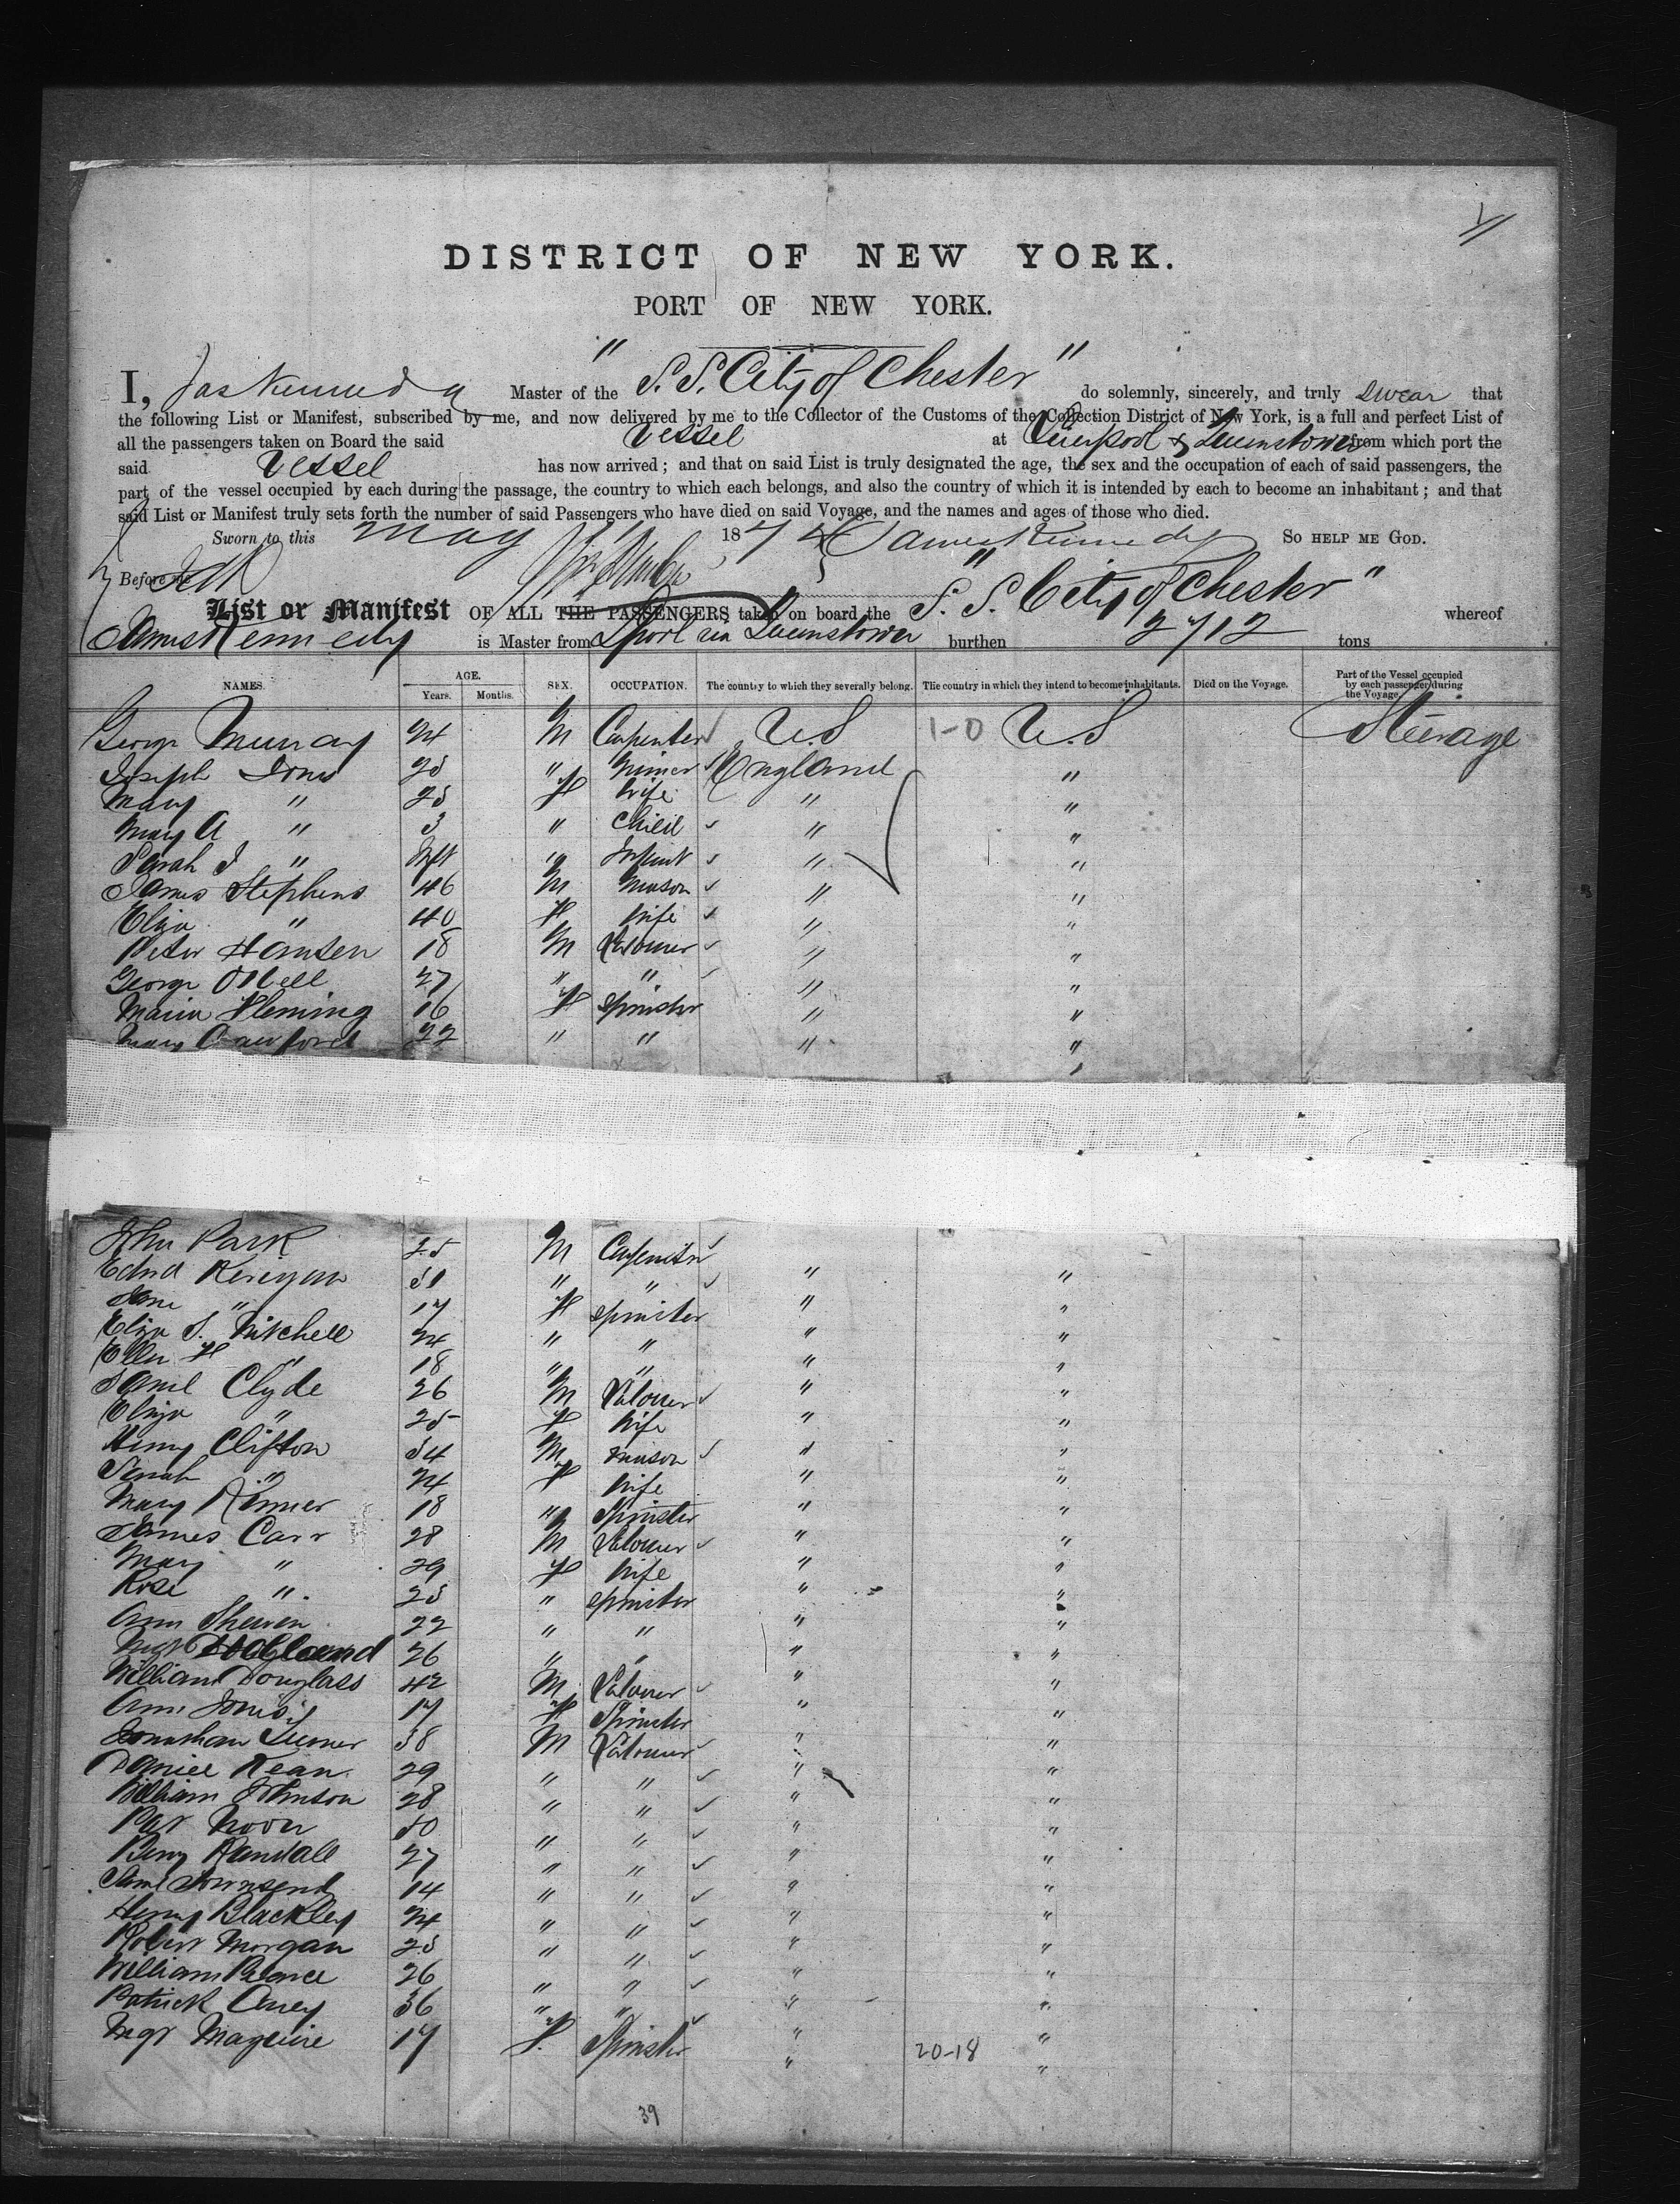 DISTRICT OF NEW YORK.
PORT OF NEW YORK.
I, Jas Kennedy Master of the "S. S. City of Chester" do solemnly, sincerely, and truly swear that
the following List or Manifest, subscribed by me, and now delivered by me to the Collector of the Customs of the Collection District of New York, is a full and perfect List of
all the passengers taken on Board the said Vessel at Liverpool & Queenstown from which port the
said Vessel has now arrived; and that on said List is truly designated the age, the sex and the occupation of each of said passengers, the
part of the vessel occupied by each during the passage, the country to which each belongs, and also the country of which it is intended by each to become an inhabitant; and that
said List or Manifest truly sets forth the number of said Passengers who have died on said Voyage, and the names and ages of those who died.
Sworn to this May 1874 James Kennedy SO HELP ME GOD.
Before me
List or Manifest OF ALL THE PASSENGERS taken on board the S. S. City of Chester" whereof
James Kennedy is Master from Lpool via Queenstown burthen 2712 tons
NAMES. AGE. Years. Months. SEX. OCCUPATION. The country to which they severally belong. The country in which they intend to become inhabitants. Died on the Voyage. Part of the Vessel occupied by each passenger during the Voyage.
George Murray 24 M Carpenter U.S 1-0 U.S Steerage
Joseph Jones 25 " Miner England "
Mary " 25 F Wife " "
Mary A " 3 " Child " "
Sarah J " Inft " Infant " "
James Stephens 46 M Mason " "
Eliza " 40 F Wife " "
Peter Hansen 18 M Labourer " "
George Odell 27 " " " "
Maria Fleming 16 F Spinster " "
Mary Crawford 22 " " " "
John Park 25 M Carpenter
Edwd Kerigan 31 " " " "
Jane " 17 F Spinster " "
Eliza S. Mitchell 24 " " " "
Ellen F " 18 " " " "
Saml Clyde 26 M Labourer " "
Eliza " 25 F Wife " "
Henry Clifton 34 M Mason " "
Sarah " 24 F Wife " "
Mary 18 " Spinster " "
James Carr 28 M Labourer " "
Mary " 29 F Wife " "
Rose " 25 " Spinster " "
Ann 22 " " " "
Mgt 26 " " " "
William Douglass 42 M Labourer " "
Ann Jones 17 F Spinster " "
Jonathan Turner 38 M Labourer " "
Daniel Kean 29 " " " "
William Johnson 28 " " " "
Pat Noon 30 " " " "
Benj Randall 27 " " " "
Saml Townsend 14 " " " "
Henry Blackley 24 " " " "
Robert Morgan 25 " " " "
William 26 " " " "
Patrick 36 " " " "
Mgt Maguire 17 F. Spinster " 20-18 "
39